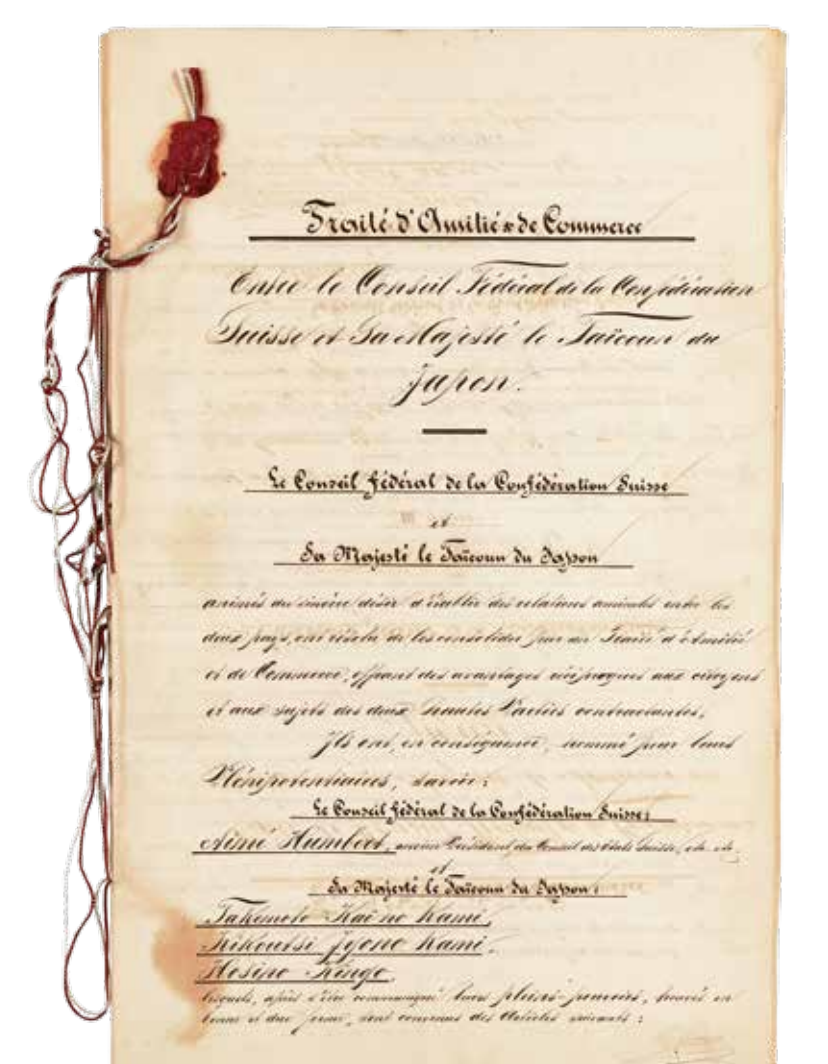 Traité d'Amitié & de Commerce
Entre le Conseil Fédéral de la Confédération
Suisse et Sa Majesté le Taïcoun du
Japon.
Le Conseil fédéral de la Confédération Suisse
et
Sa Majesté le Taïcoun du Japon
animés du sincère désir d'établir des relations amicales entre les
deux pays, ont résolu de les consolider par un Traité d'Amitié
et de Commerce, offrant des avantages réciproques aux citoyens
et aux sujets des deux Hautes Parties contractantes.
Ils ont, en conséquence, nommé pour leurs
Plénipotentiaires, savoir:
Le Conseil fédéral de la Confédération Suisse:
Aimé Humbert, ancien Président du Conseil des Etats Suisse, etc. etc.
et
Sa Majesté le Taïcoun du Japon:
Takemoto Kaï no Kami,
Kikoutsi Iyono Kami,
Hosino Kingo,
lesquels, après s'être communiqué leurs pleins-pouvoirs, trouvés en
bonne et due forme, sont convenus des Articles suivants: